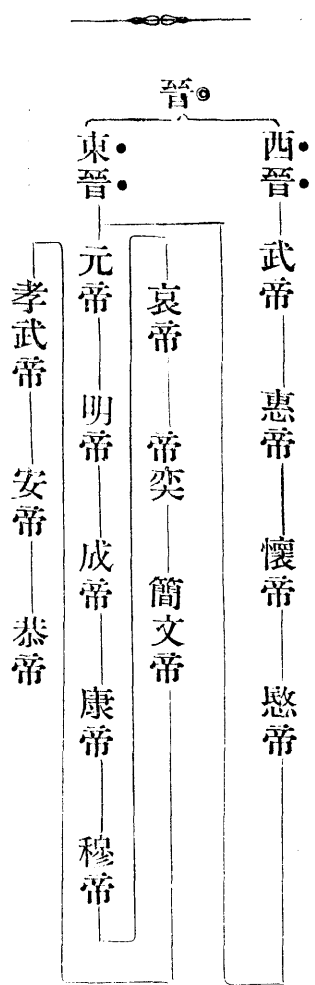 晉
西晉 武帝 惠帝 懷帝 愍帝
東晉 元帝 明帝 成帝 康帝 穆帝
哀帝 帝奕 簡文帝
孝武帝 安帝 恭帝